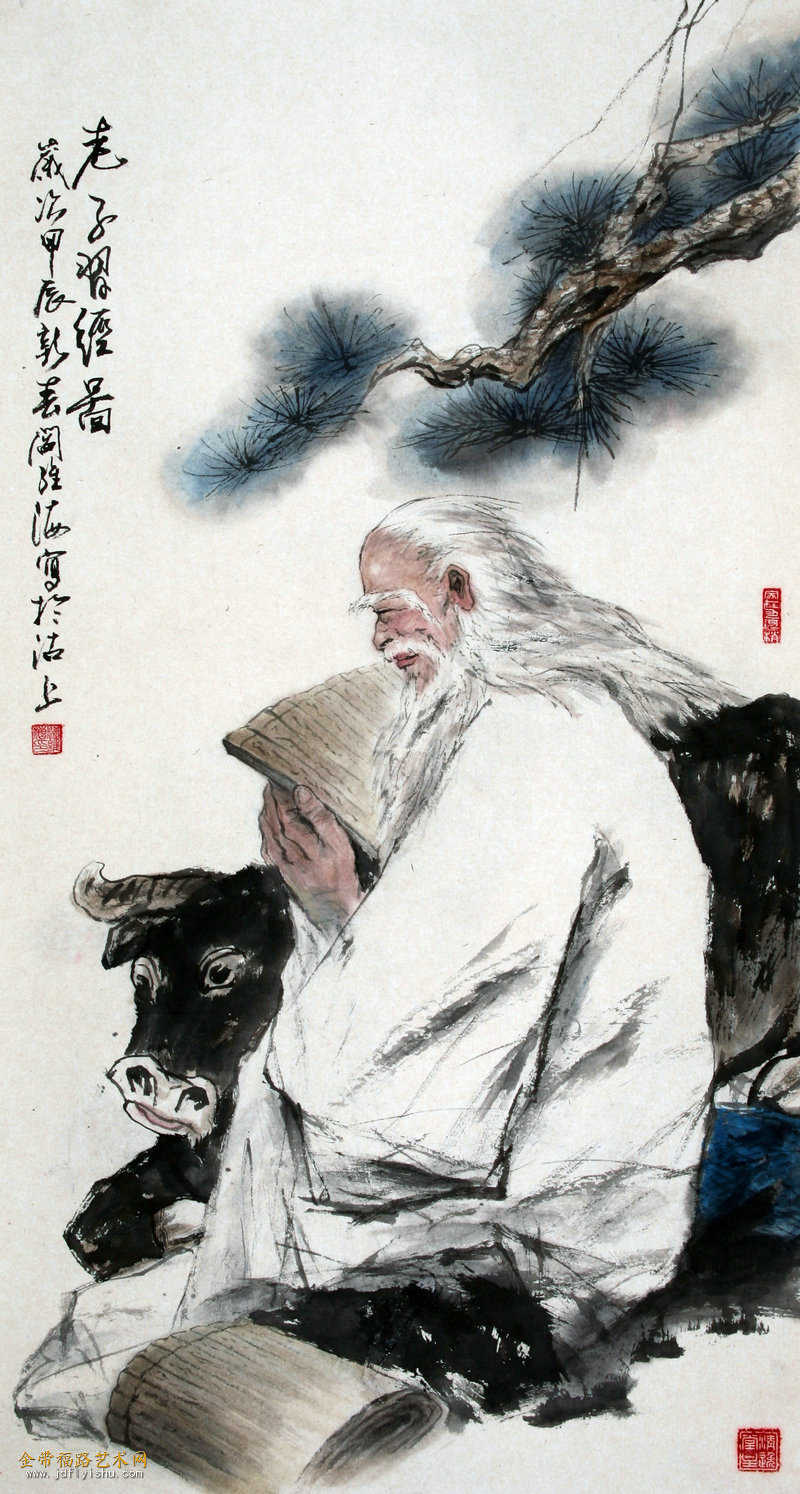 老子習經圖
歲次甲辰新春閻維海寫於沽上
金带福路艺术网
www.jdflyishu.com